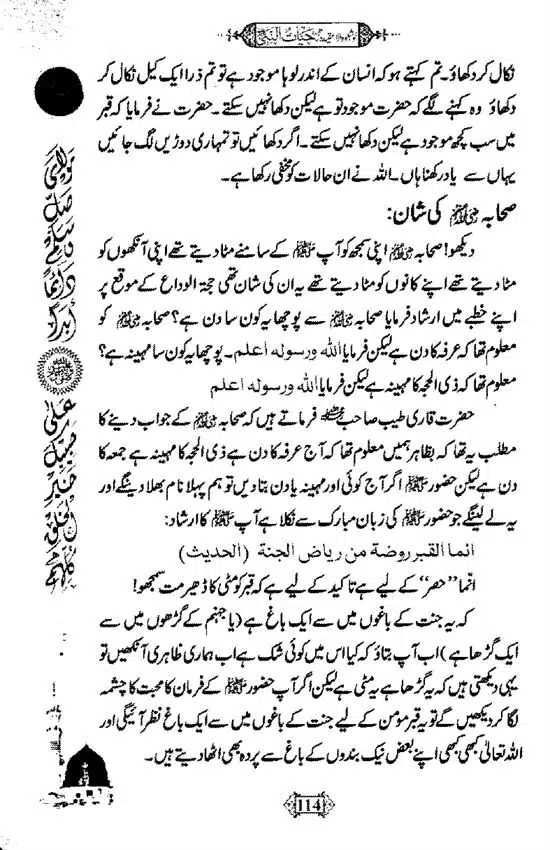 حیات النبی
نکال کر دکھاؤ۔ تم کہتے ہو کہ انسان کے اندر لوہا موجود ہے تو تم ذرا ایک کیل نکال کر
دکھاؤ وہ کہنے لگے کہ حضرت موجود تو ہے لیکن دکھا نہیں سکتے۔ حضرت نے فرمایا کہ قبر
میں سب کچھ موجود ہے لیکن دکھا نہیں سکتے۔ اگر دکھائیں تو تمہاری دوڑیں لگ جائیں
یہاں سے یاد رکھنا ہاں۔ اللہ نے ان حالات کو مخفی رکھا ہے۔
صحابہ کی شان:
دیکھو! صحابہ اپنی سمجھ کو آپ ﷺ کے سامنے مٹا دیتے تھے اپنی آنکھوں کو
مٹا دیتے تھے اپنے کانوں کو مٹا دیتے تھے یہ ان کی شان تھی حجۃ الوداع کے موقع پر
اپنے خطبے میں ارشاد فرمایا صحابہ سے پوچھا یہ کون سا دن ہے؟ صحابہ کو
معلوم تھا کہ عرفہ کا دن ہے لیکن فرمایا اللہ ورسولہ اعلم۔ پوچھا یہ کون سا مہینہ ہے؟
معلوم تھا کہ ذی الحجہ کا مہینہ ہے لیکن فرمایا اللہ ورسولہ اعلم
حضرت قاری طیب صاحب فرماتے ہیں کہ صحابہ کے جواب دینے کا
مطلب یہ تھا کہ بظاہر ہمیں معلوم تھا کہ آج عرفہ کا دن ہے ذی الحجہ کا مہینہ ہے جمعہ کا
دن ہے لیکن حضور ﷺ اگر آج کوئی اور مہینہ یا دن بتا دیں تو ہم پہلا نام بھلا دینگے اور
یہ لے لینگے جو حضور ﷺ کی زبان مبارک سے نکلا ہے آپ ﷺ کا ارشاد:
انما القبر روضة من رياض الجنة (الحديث)
انما ”حصر“ کے لیے ہے تاکید کے لیے ہے کہ قبر کو مٹی کا ڈھیر مت سمجھو!
کہ یہ جنت کے باغوں میں سے ایک باغ ہے (یا جہنم کے گڑھوں میں سے
ایک گڑھا ہے) اب آپ بتاؤ کہ کیا اس میں کوئی شک ہے اب ہماری ظاہری آنکھیں تو
یہی دیکھتی ہیں کہ یہ گڑھا ہے یہ مٹی ہے لیکن اگر آپ حضور ﷺ کے فرمان کا محبت کا چشمہ
لگا کر دیکھیں گے تو یہ قبر مومن کے لیے جنت کے باغوں میں سے ایک باغ نظر آئیگی اور
اللہ تعالیٰ کبھی کبھی اپنے بعض نیک بندوں کے باغ سے پردہ بھی اٹھا دیتے ہیں۔
مولای صل وسلم دائما ابدا
على حبيبك خير الخلق كلهم
114